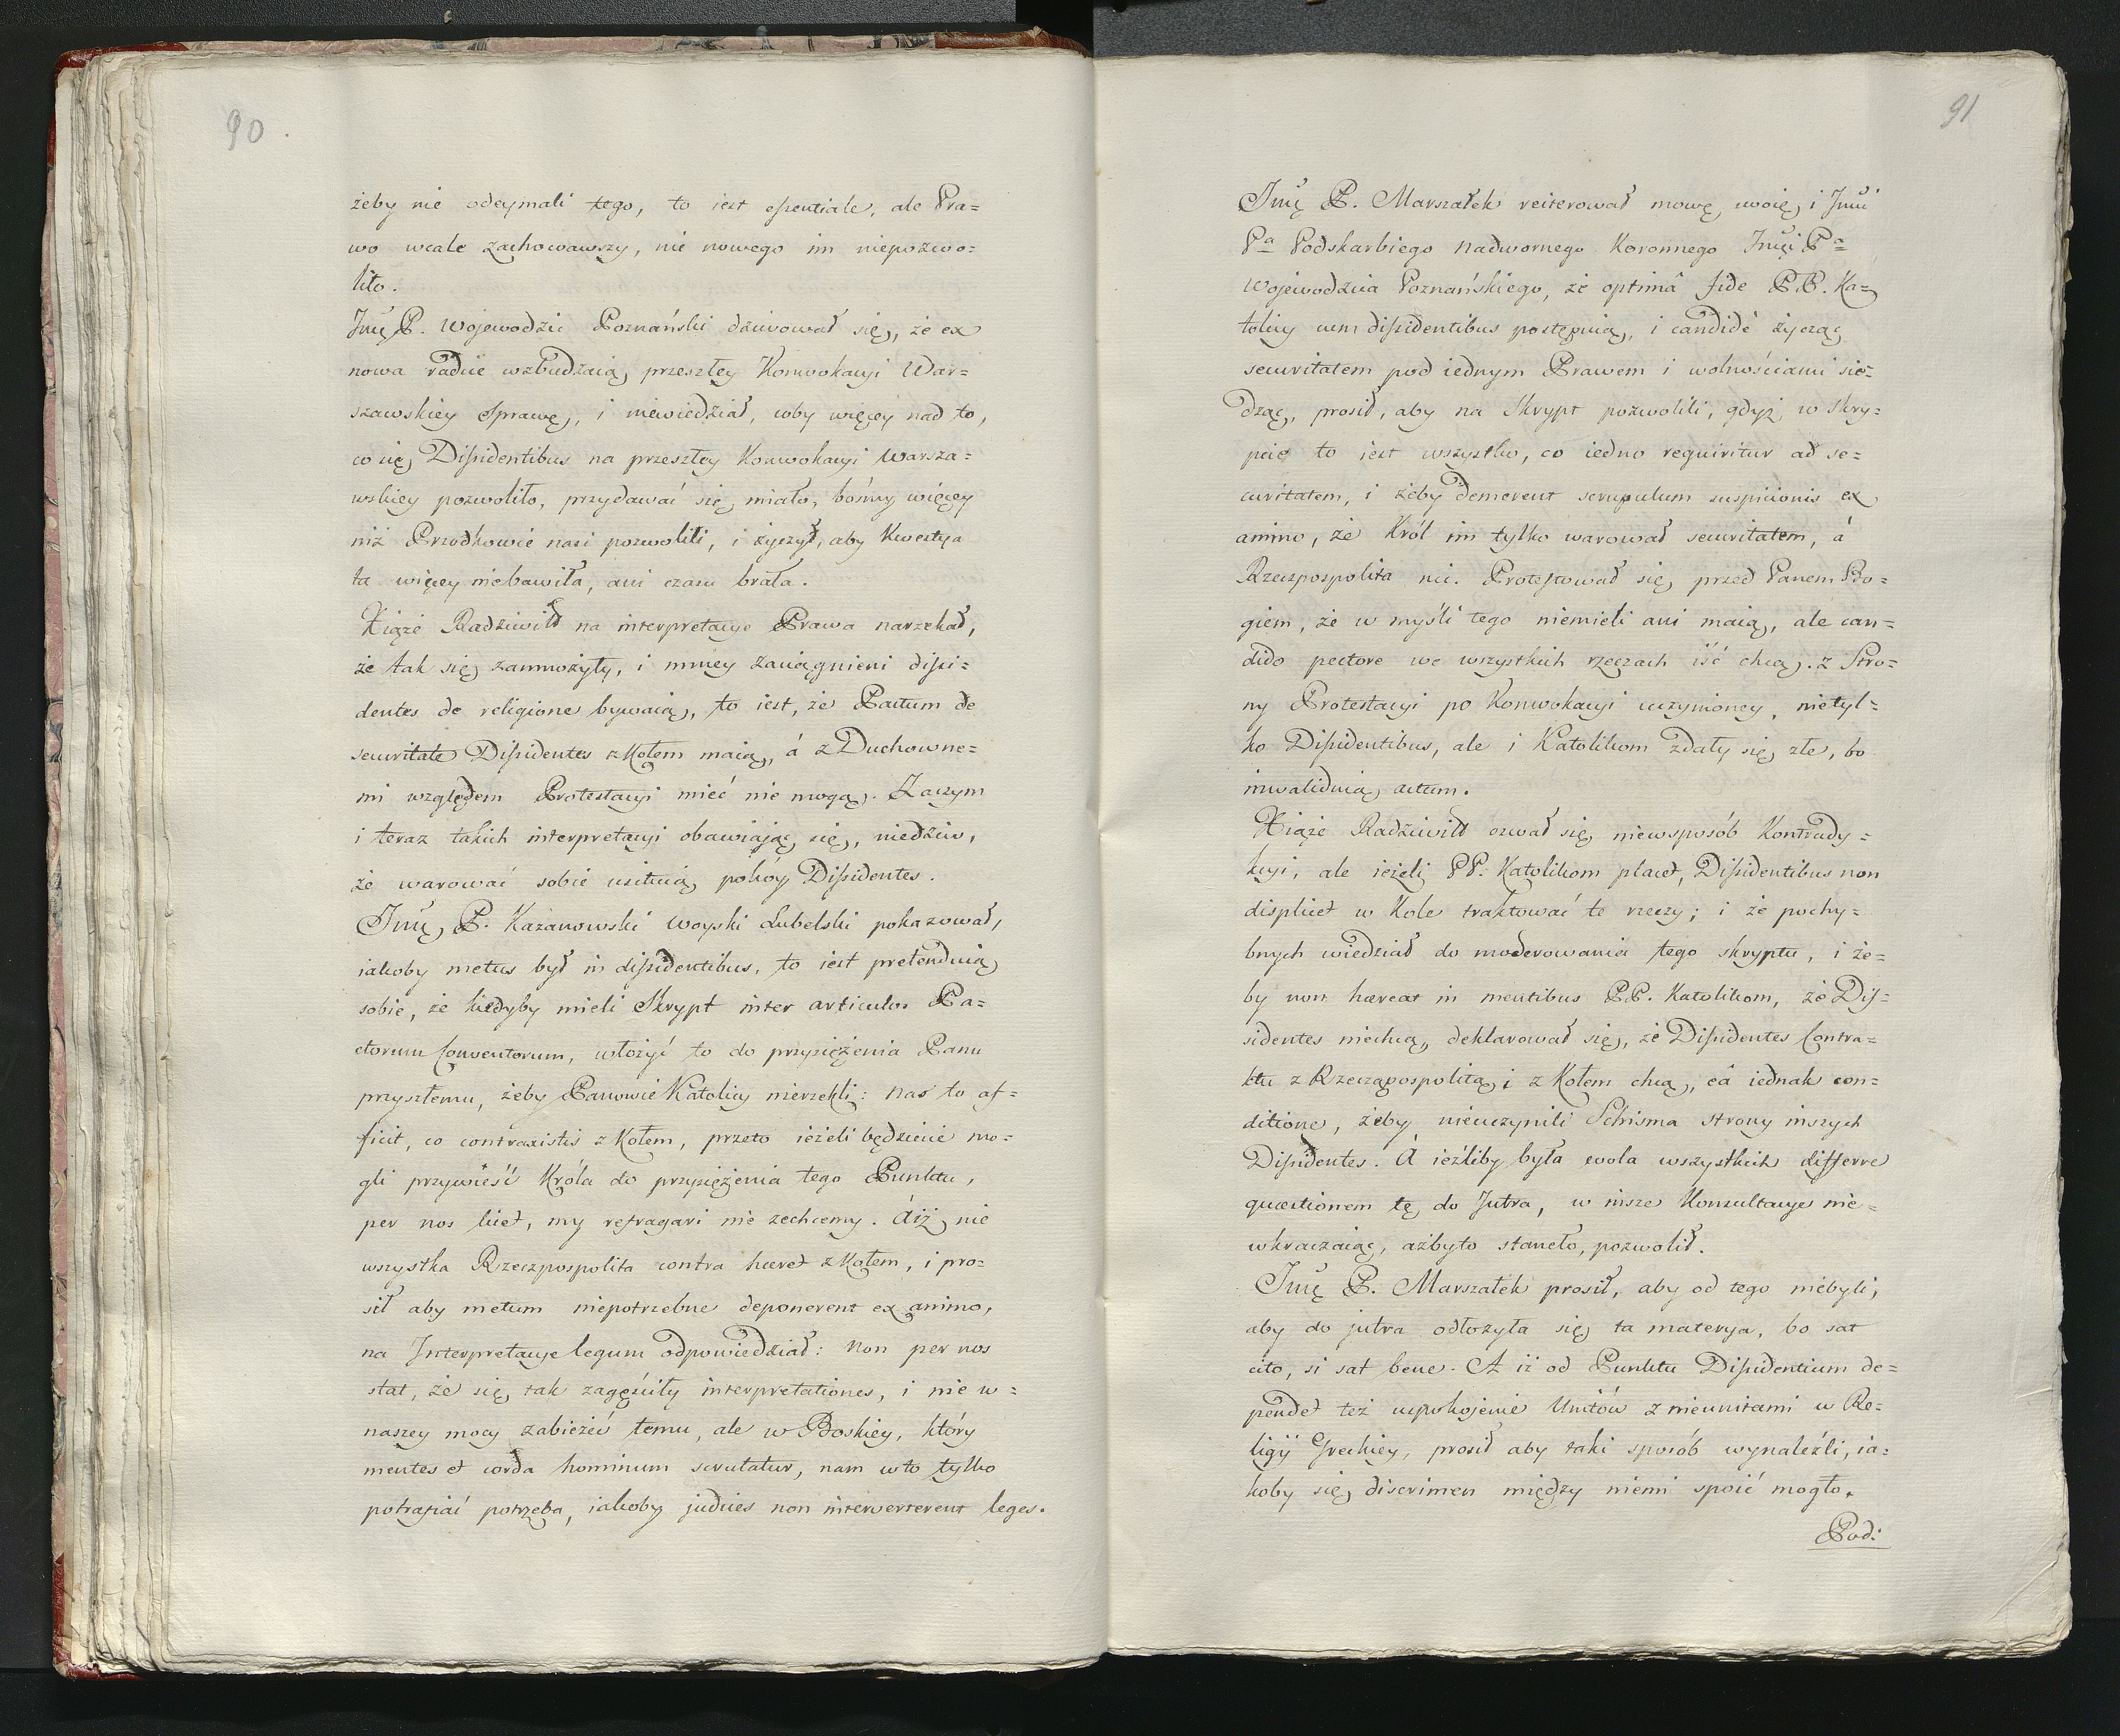 90.
żeby nie odeymali tego, to iest essentiale, ale Pra=
wo wcale zachowawszy, nic nowego im niepozwo=
liło.
Jmć P. Wojewodzic Poznański dziwował się, że ex
nowa radice wzbudzaią przeszłey Konwokacyi War=
szawskiey Sprawę, i niewiedział, coby więcey nad to,
co się Dissidentibus na przeszłey Konwokacyi Warsza=
wskiey pozwoliło, przydawać się miało, bośmy więcey
niż Przodkowie nasi pozwolili, i życzył, aby Kwestya
ta więcey niebawiła, ani czasu brała.
Xiąże Radziwiłł na interpretacye Prawa narzekał,
że tak się zamnożyły, i mniey zaciągnieni dissi=
dentes de religione bywaią, to iest, że Pactum de
securitate Dissidentes z Kołem maią, á z Duchowne=
mi względem Protestacyi mieć nie mogą. Zaczym
i teraz takich interpretacyi obawiaiąc się, niedziw,
że warować sobie usiłuią pokóy Dissidentes.
Jmć P. Kazanowski Woyski Lubelski pokazował,
iakoby metus był in dissidentibus, to iest pretenduią
sobie, że kiedyby mieli Skrypt inter articulos Pa=
ctorum Conventorum, włożyć to do przysiężenia Panu
przyszłemu, żeby Panowie Katolicy nierzekli: nas to af=
ficit, co contraxistis z Kołem, przeto ieżeli będziecie mo=
gli przywieść Króla do przysiężenia tego Punktu,
per nos licet, my refragari nie zechcemy. Áiż nie
wszystka Rzeczpospolita contra haeret z Kołem, i pro=
sił aby metum niepotrzebne deponerent ex animo,
na Interpretacye legum odpowiedział: non per nos
stat, że się tak zagęściły interpretationes, i nie w=
naszey mocy zabieżeć temu, ale w Boskiey, który
mentes et corda hominum scrutatur, nam w to tylko
potrafiać potrzeba, iakoby judices non interverterent leges.
91
Jmć P. Marszałek reiterował mowę swoię i Jmci
Pa Podskarbiego nadwornego Koronnego Jmci Pa
Wojewodzica Poznańskiego, że optimâ fide PP. Ka=
tolicy cum dissidentibus postępuią, i candidè życzą
securitatem pod iednym Prawem i wolnościami sie=
dząc, prosił, aby na Skrypt pozwolili, gdyż w Skry=
pcie to iest wszystko, co iedno requiritur ad se=
curitatem, i żeby demerent scrupulum suspicionis ex
animo, że Król im tylko warował securitatem, á
Rzeczpospolita nie. Protestował się przed Panem Bo=
giem, że w myśli tego niemieli ani maią, ale can=
dido pectore we wszystkich rzeczach iść chcą. z Stro=
ny Protestacyi po Konwokacyi uczynioney, nietyl=
ko Dissidentibus, ale i Katolikom zdały się złe, bo
invaliduią actum.
Xiąże Radziwiłł ozwał się niewsposób Kontrady=
kcyi, ale ieżeli PP. Katolikom placet, Dissidentibus non
displicet w Kole traktować te rzeczy; i że pochy=
bnych wiedział do moderowania tego skryptu, i że=
by non haereat in mentibus PP. Katolikom, że Dis=
sidentes niechcą, deklarował się, że Dissidentes Contra=
ktu z Rzecząpospolitą i z Kołem chcą, eâ iednak con=
ditione, żeby nieuczynili Schisma strony inszych
Dissidentes. Á ieźliby była wola wszystkich differre
quaestionem tę do Jutra, w insze Konsultacye nie=
wkraczaiąc, ażbyto staneło, pozwolił.
Jmć P. Marszałek prosił, aby od tego niebyli,
aby do jutra odłożyła się ta materya, bo sat
cito, si sat bene. A iż od Punktu Dissidentium de=
pendet też uspokojenie Unitów z nieunitami w Re=
ligij Greckiey, prosił aby taki sposób wynaleźli, ia=
koby się discrimen między niemi spoić mogło.
Pod: